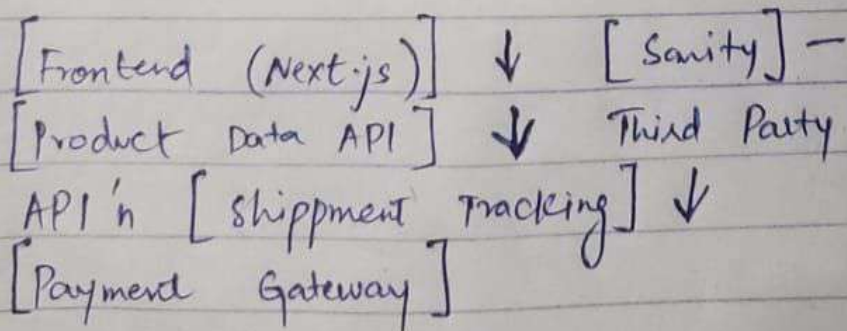 [Frontend (Next.js)] ↓ [Sanity] —
[Product Data API] ↓ Third Party
API'n [Shippment Tracking] ↓
[Payment Gateway]